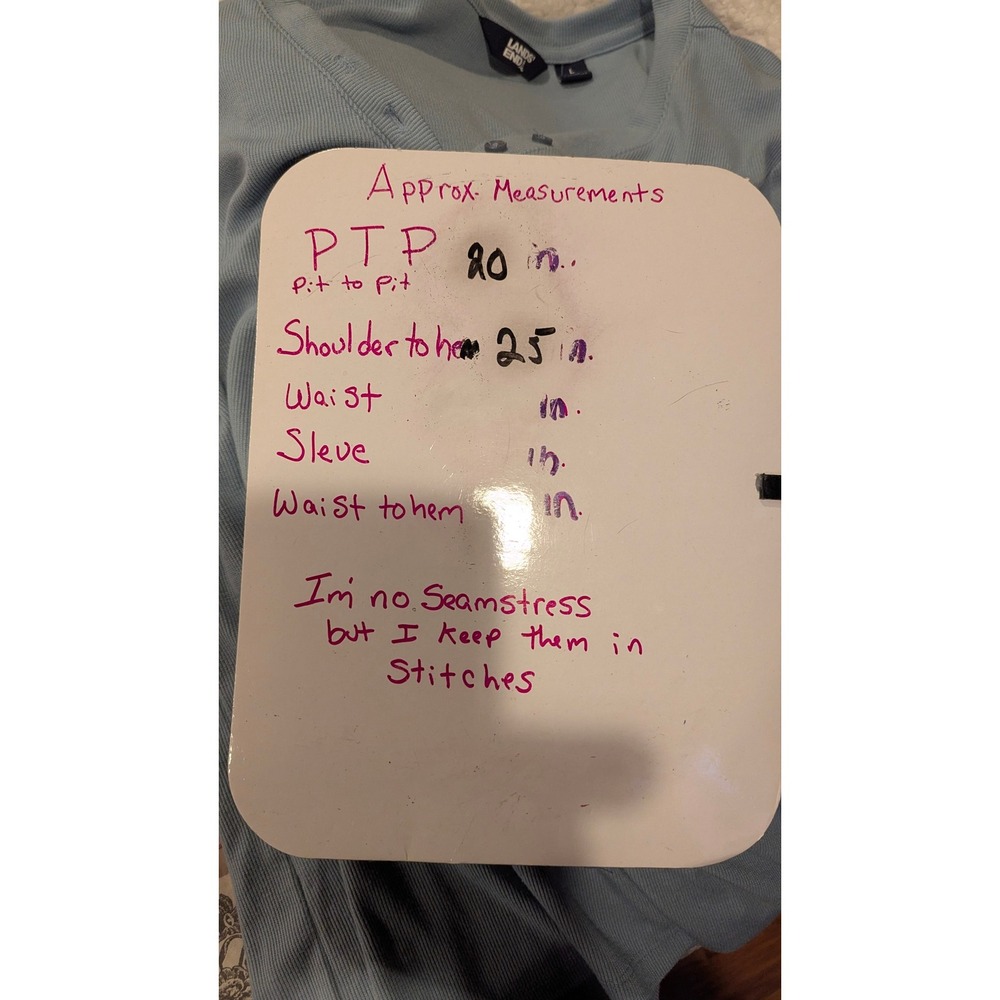 LANDS'
END
L
Approx. Measurements
PTP 20 in.
Pit to Pit
Shoulder to hem 25 in.
Waist in.
Sleve in.
Waist to hem in.
I'm no Seamstress
but I keep them in
Stitches